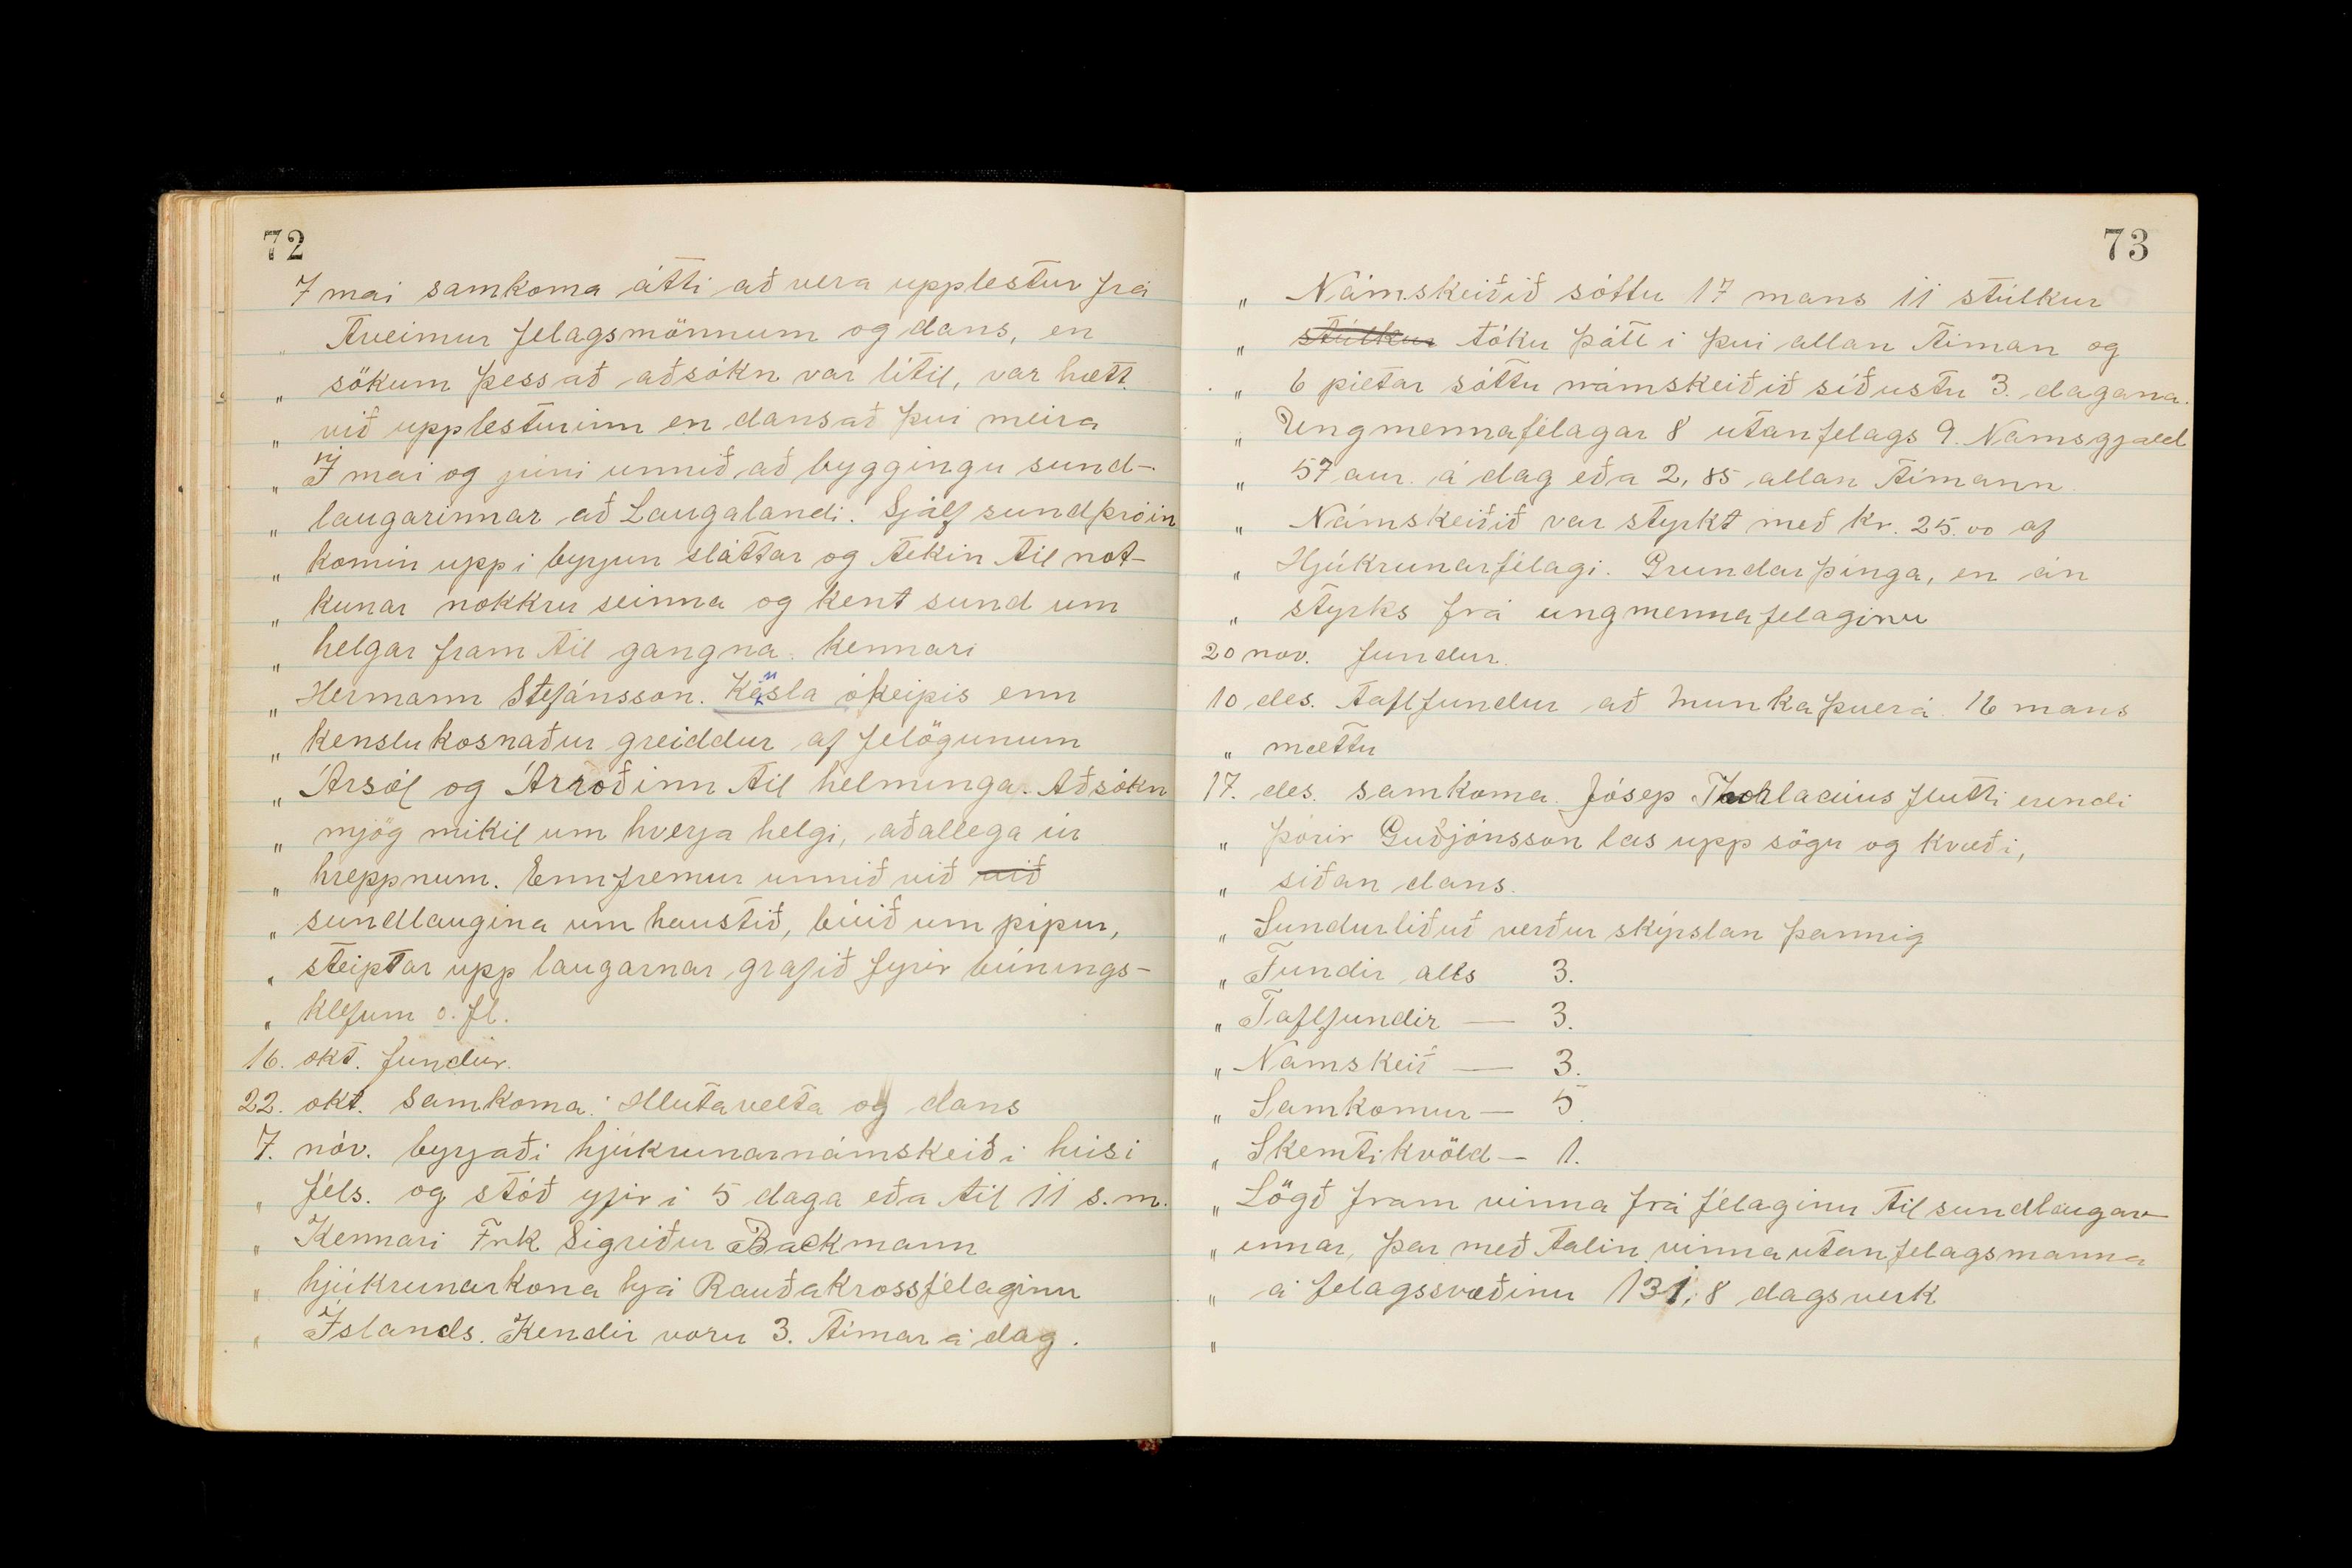 72
7 mai samkoma átti að vera upplestur frá
„ tveimur felagsmönnum og dans, en
„ sökum þess að aðsókn var lítil, var hætt
„ við upplesturinn en dansað þvi meira
„ Í mai og júni unnið að byggingu sund-
„ laugarinnar að Laugalandi. Sjálf sundþróin
„ komin upp i byrjun sláttar og tekin til not-
„ kunar nokkru seinna og kent sund um
„ helgar fram til gangna. Kennari
„ Hermann Stefánsson. Kensla ókeipis enn
„ kenslukosnaður greiddur af felögunum
„ Ársól og Árroðinn til helminga. Aðsókn
„ mjög mikil um hverja helgi, aðallega úr
„ hreppnum. Ennfremur unnið við við
„ sundlaugina um haustið, búið um pípur,
„ steiptar upp laugarnar grafið fyrir búnings-
„ klefum o. fl.
16. okt. fundur.
22. okt. Samkoma: Hlutavelta og dans
7. nóv. byrjaði hjúkrunarnámskeið i húsi
„ féls. og stóð yfir i 5 daga eða til 11 s.m.
„ Kennari Frk Sigriður Backmann
„ hjúkrunarkona hjá Rauðakrossfélaginu
„ Íslands. Kendir voru 3. tímar á dag.
73
„ Námskeiðið sóttu 17 mans 11 stúlkur
„ stúlkur tóku þátt i þvi allan tíman og
„ 6 piltar sóttu námskeiðið síðustu 3. dagana.
„ Ungmennafélagar 8 utanfelags 9. Námsgjald
„ 57 aur. á dag eða 2,85 allan tímann
„ Námskeiðið var styrkt með kr. 25.00 af
„ Hjúkrunarfélagi. Grundarþinga, en án
„ styrks frá ungmennafelaginu
20 nov. fundur.
10 des. taflfundur að Munkaþverá. 16 mans
„ mættu
17. des. samkoma. Jósep Thorlacius flutti erindi
„ Þórir Guðjónsson las upp sögu og kvæði,
„ siðan dans.
„ Sundurliðuð verður skýrslan þannig
„ Fundir alls 3.
„ Taflfundir — 3.
„ Námskeið — 3.
„ Samkomur — 5.
„ Skemtikvöld — 1.
„ Lögð fram vinna frá félaginu til sundlaugar
„ innar, þar með talin vinna utanfelagsmanna
„ á felagssvæðinu 131,8 dagsverk
„